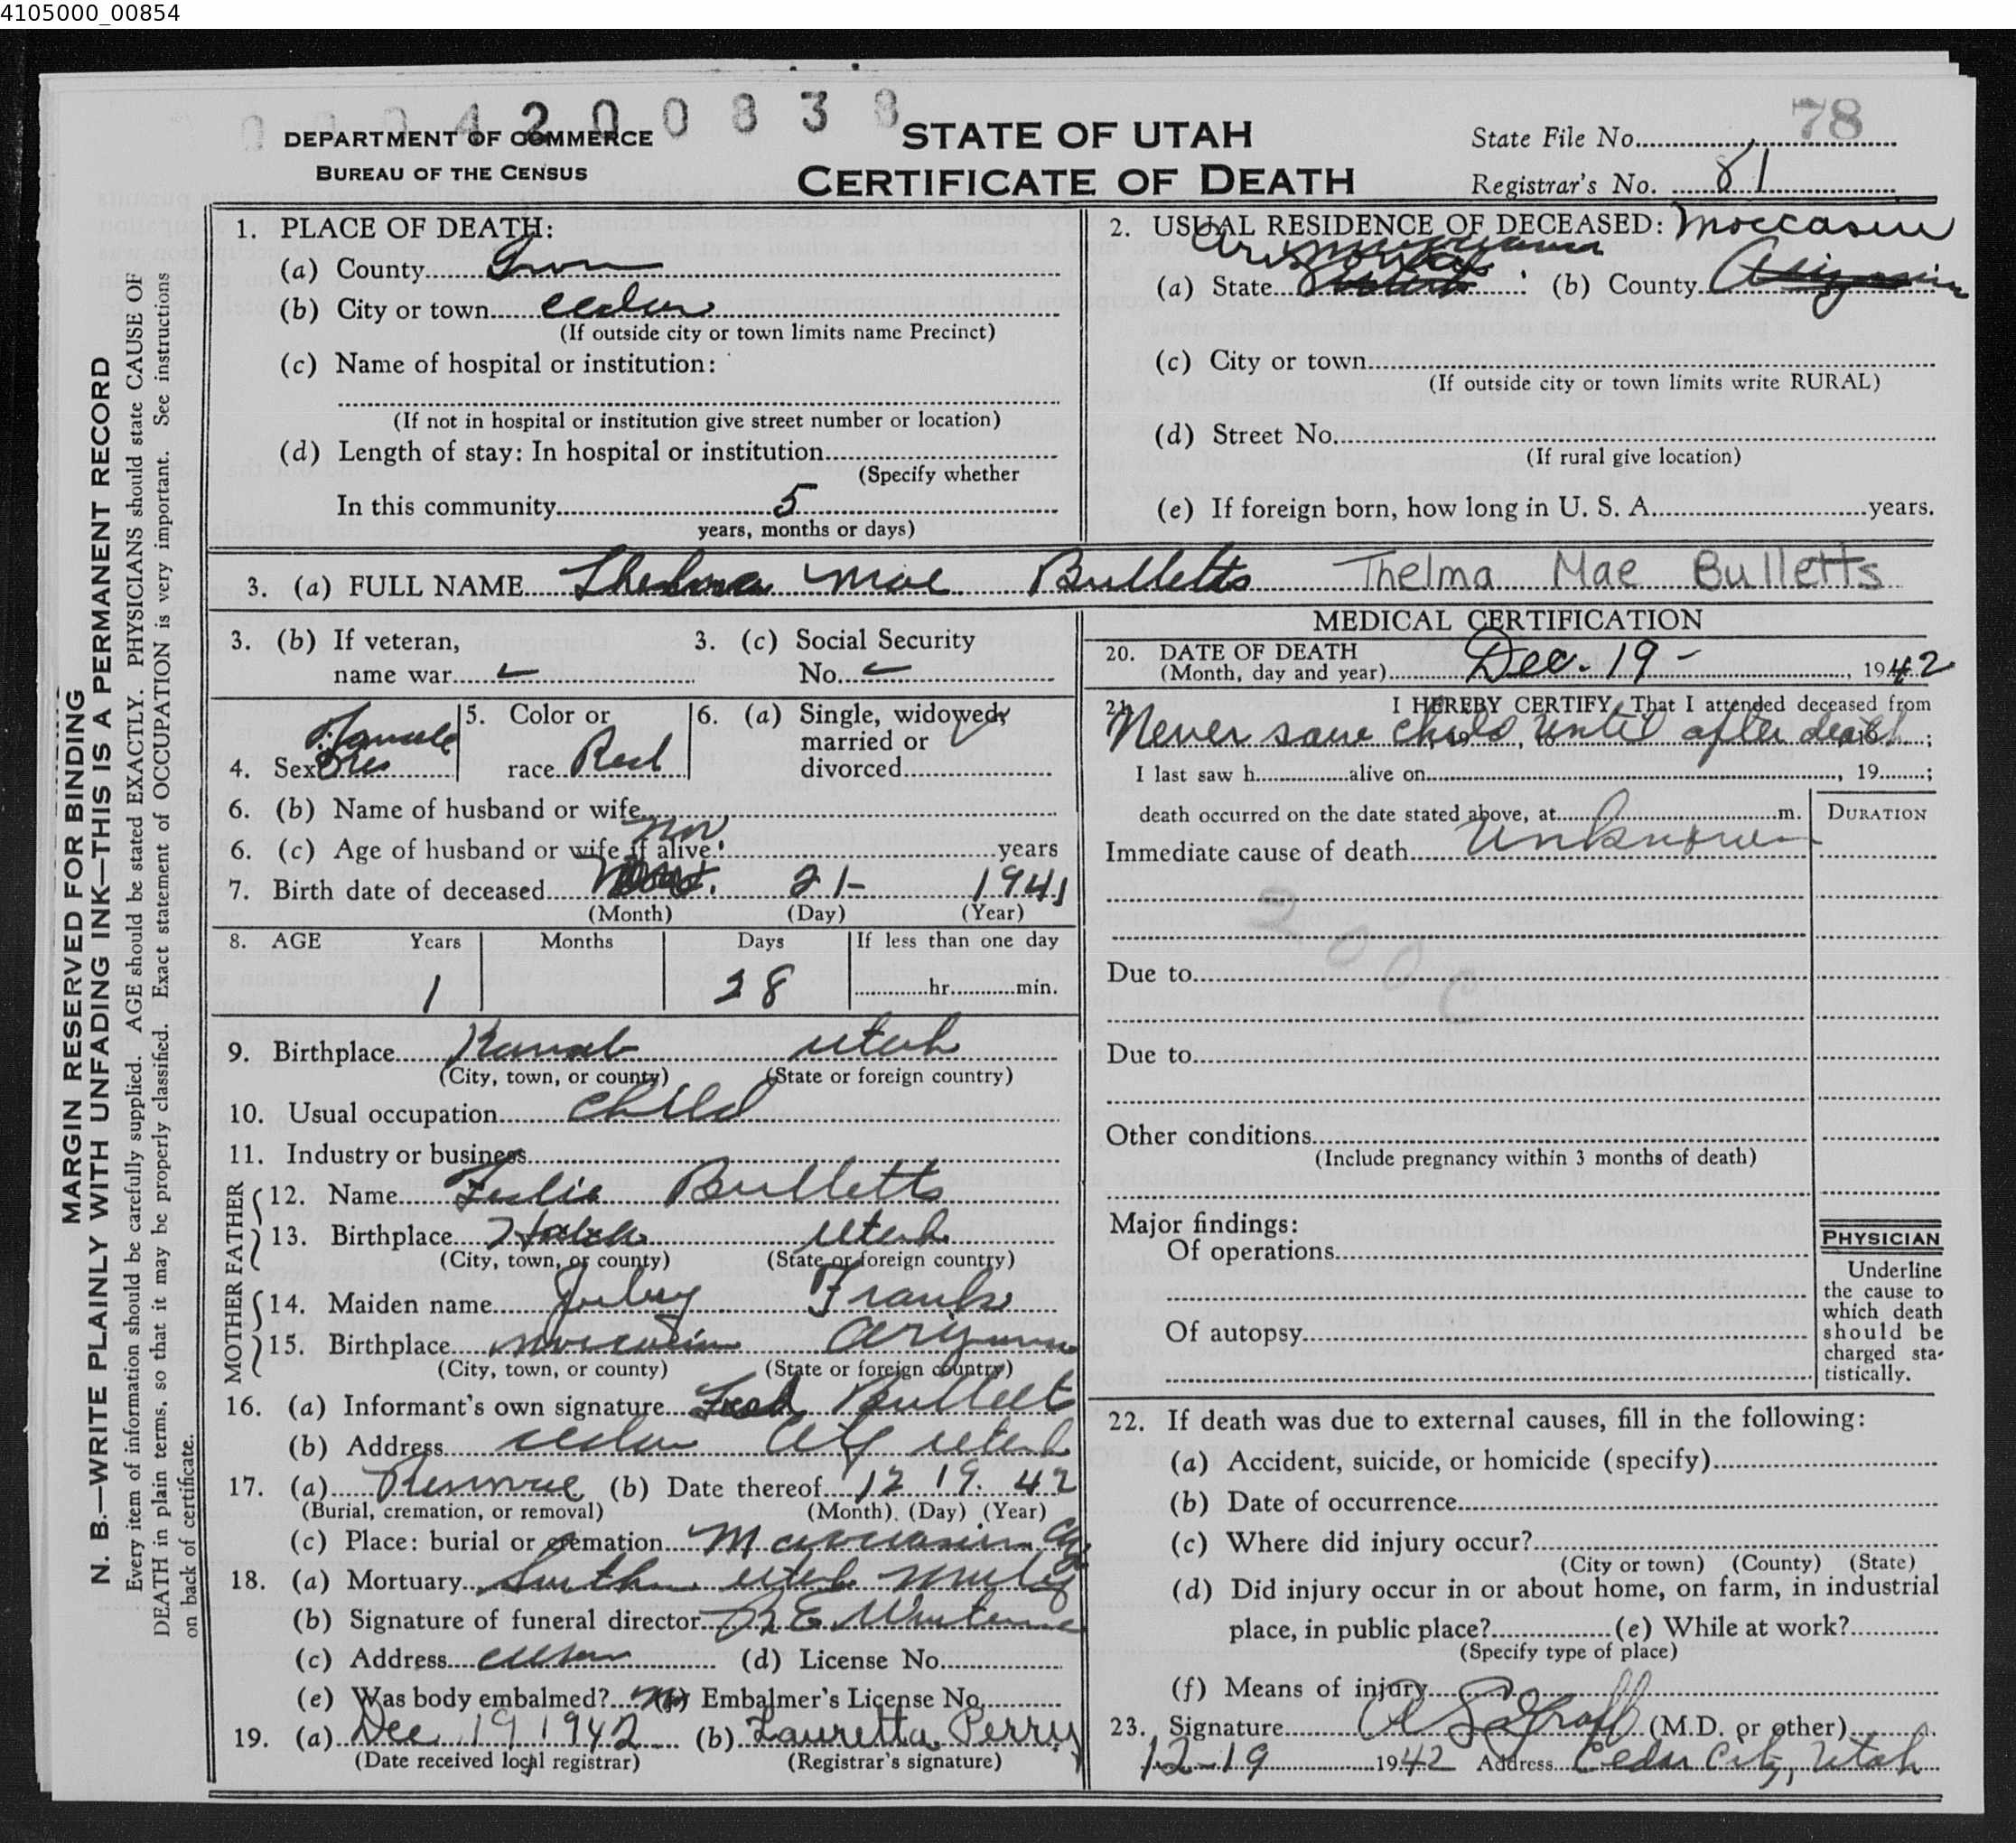 4105000_00854
0 0 0 4 2 0 0 8 3 8
78
DEPARTMENT OF COMMERCE
BUREAU OF THE CENSUS
STATE OF UTAH
CERTIFICATE OF DEATH
State File No.
Registrar's No. 81
MARGIN RESERVED FOR BINDING
N. B.—WRITE PLAINLY WITH UNFADING INK—THIS IS A PERMANENT RECORD
Every item of information should be carefully supplied. AGE should be stated EXACTLY. PHYSICIANS should state CAUSE OF
DEATH in plain terms, so that it may be properly classified. Exact statement of OCCUPATION is very important. See instructions
on back of certificate.
1. PLACE OF DEATH:
(a) County Iron
(b) City or town Cedar
(If outside city or town limits name Precinct)
(c) Name of hospital or institution:
(If not in hospital or institution give street number or location)
(d) Length of stay: In hospital or institution
(Specify whether
In this community 5
years, months or days)
2. USUAL RESIDENCE OF DECEASED: Moccasin
(a) State (b) County
(c) City or town
(If outside city or town limits write RURAL)
(d) Street No.
(If rural give location)
(e) If foreign born, how long in U. S. A. years.
3. (a) FULL NAME Thelma Mae Bulletts Thelma Mae Bulletts
3. (b) If veteran,
name war
3. (c) Social Security
No.
4. Sex Female
5. Color or
race Red
6. (a) Single, widowed,
married or
divorced
6. (b) Name of husband or wife
6. (c) Age of husband or wife if alive years
7. Birth date of deceased Nov 21- 1941
(Month) (Day) (Year)
8. AGE Years Months Days If less than one day
1 28 hr. min.
9. Birthplace Kanab Utah
(City, town, or county) (State or foreign country)
10. Usual occupation Child
11. Industry or business
FATHER
12. Name Bulletts
13. Birthplace Hatch Utah
(City, town, or county) (State or foreign country)
MOTHER
14. Maiden name Frank
15. Birthplace Moccasin Arizona
(City, town, or county) (State or foreign country)
16. (a) Informant's own signature Bullett
(b) Address Cedar City Utah
17. (a) Removal (b) Date thereof 12 19. 42
(Burial, cremation, or removal) (Month) (Day) (Year)
(c) Place: burial or cremation Moccasin
18. (a) Mortuary Southern Utah
(b) Signature of funeral director
(c) Address Cedar (d) License No.
(e) Was body embalmed? No (f) Embalmer's License No.
19. (a) Dec 19 1942 (b) Lauretta Perry
(Date received local registrar) (Registrar's signature)
MEDICAL CERTIFICATION
20. DATE OF DEATH
(Month, day and year) Dec. 19 - , 1942
21. I HEREBY CERTIFY, That I attended deceased from
Never saw child until after death
, 19 , to , 19 ;
I last saw h alive on , 19 ;
death occurred on the date stated above, at m.
DURATION
Immediate cause of death Unknown
200c
Due to
Due to
Other conditions
(Include pregnancy within 3 months of death)
Major findings:
Of operations
Of autopsy
PHYSICIAN
Underline
the cause to
which death
should be
charged sta-
tistically.
22. If death was due to external causes, fill in the following:
(a) Accident, suicide, or homicide (specify)
(b) Date of occurrence
(c) Where did injury occur?
(City or town) (County) (State)
(d) Did injury occur in or about home, on farm, in industrial
place, in public place? (e) While at work?
(Specify type of place)
(f) Means of injury
23. Signature (M.D. or other)
12-19 1942 Address Cedar City, Utah